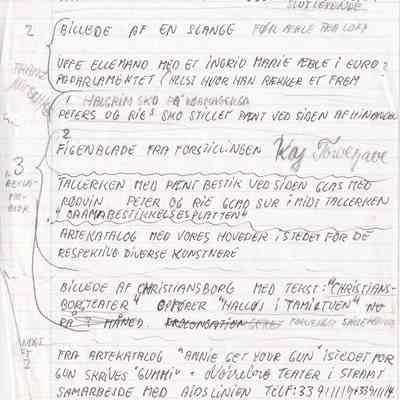 SLUTLERENDE
2 BILLEDE AF EN SLANGE FØR ÆBLE
UFFE ELLEMAND MED ET INGRID MARIE ÆBLE I EURO
PAPARLAMENTET (HELST HVOR HAN RÆKKER ET FREM
1 HALGRIM SKO PÅ
PETERS OG RIES SKO STILLET PÆNT VED SIDEN AF HINANDEN
2
FIGENBLADE FRA FORSTILLINGEN Kaj
3
TALLERKEN MED PÆNT BESTIK VED SIDEN GLAS MED
RØDVIN PETER OG RIE GLAD SUR I MIDT TALLERKEN
"DRAMABESTIKKELSESPLATTEN"
ARTEKATALOG MED VORES HOVEDER I STEDET FOR DE
RESPEKTIVE DIVERSE KUNSTNERE
BILLEDE AF CHRISTIANSBORG MED TEKST: "CHRISTIANS-
BORGTEATER" OPFØRER "HALLØJ I TAMIRTUEN" NU
PÅ MÅNED. PROLONGATION
FRA ARTEKATALOG "ANNIE GET YOUR GUN" ISTEDET FOR
GUN SKRIVES "GUMMI" + TEATER I STRAMT
SAMARBEJDE MED AIDSLINIEN TELF: 33 91 11 19